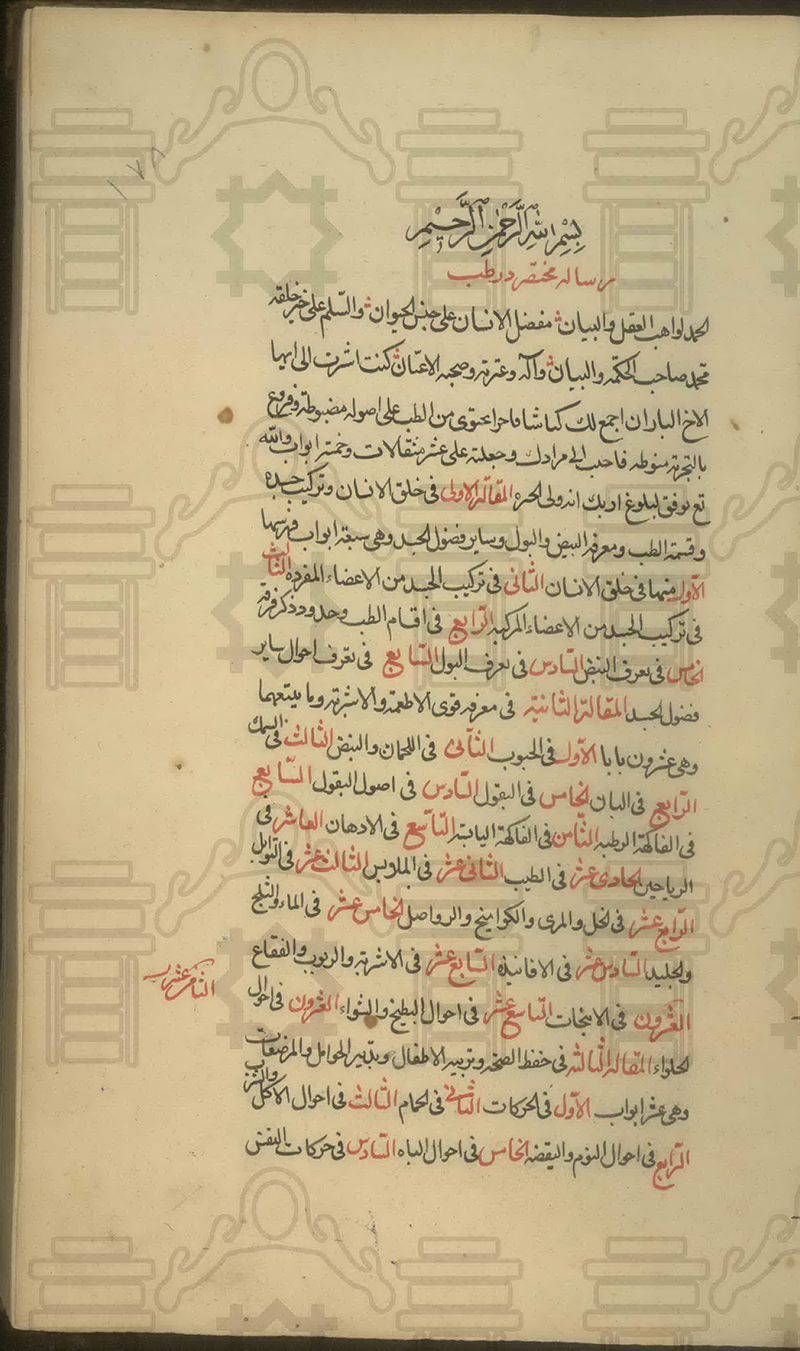 ١٧٨
بسم الله الرحمن الرحيم
رساله مختصر در طب
الحمد لواهب العقل والبيان مفضل الانسان على جنس الحيوان والسلم على خير خلقه
محمد صاحب الحكمه والبيان وآله وعترته وصحبه الاعيان كنت اشرت الى ايها
الاخ البار ان اجمع لك كناشا يحتوى من الطب على اصوله مضبوطة وفروع
بالتجربة منوطه فاجبت الى مرادك وجعلته على عشر مقالات وخمسة ابواب والله
تع يوفق لبلوغ اربك انه ولى الخيره المقالة الاولى فى خلق الانسان وتركيب جسده
وقسمة الطب ومعرفة النبض والبول وساير فضول الجسد وهى سبعة ابواب فهرستها
الأول منها فى خلق الانسان الثانى فى تركيب الجسد من الاعضاء المفرده الثالث
فى تركيب الجسد من الاعضاء المركبه الرابع فى اقسام الطب وحدود ذكر فرقه
الخامس فى تعرف النبض السادس فى تعرف البول السابع فى تعرف احوال ساير
فضول الجسد المقالة الثانية فى معرفة قوى الاطعمة والاشربة وما يتبعهما
وهى عشرون بابا الأول فى الحبوب الثانى فى اللحمان والبيض الثالث فى السمك
الرابع فى البان الخامس فى البقول السادس فى اصول البقول السابع
فى الفاكهة الرطبه الثامن فى الفاكهة اليابسة التاسع فى الادهان العاشر فى
الرياحين الحادى عشر فى الطيب الثانى عشر فى الملابس الثالث عشر فى التوابل
الرابع عشر فى الخل والمرى والكواميخ والرواصل الخامس عشر فى الماء والثلج
والجليد السادس عشر فى الافانيذه السابع عشر فى الاشربة والربوب والفقاع
الثامن عشر
العشرون فى الانبجات التاسع عشر فى احوال البطيخ والشواء العشرون فى احوال
الحلواء المقالة الثالثه فى حفظ الصحة وتربية الاطفال وتدبير الحوامل والمرضعات
وهى عشر ابواب الأول فى الحركات الثانى فى الحمام الثالث فى احوال الاكل والشرب
الرابع فى احوال النوم واليقضه الخامس فى احوال الباه السادس فى حركات النفس